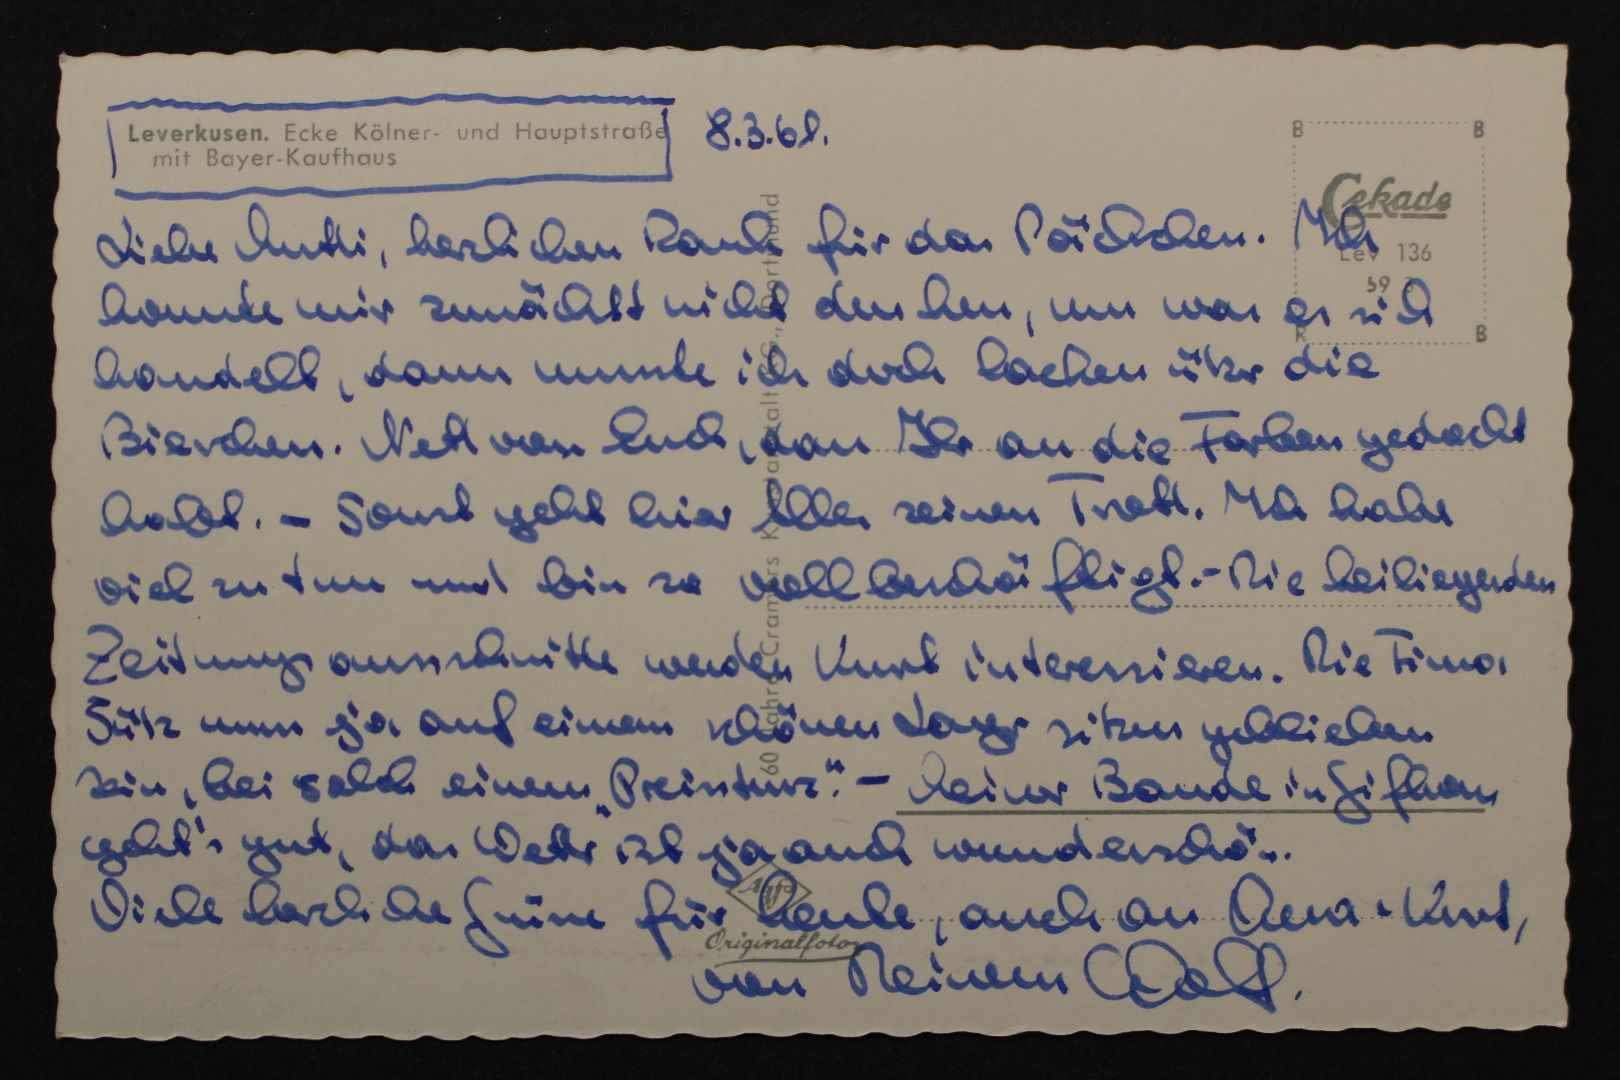 Leverkusen. Ecke Kölner- und Hauptstraße
mit Bayer-Kaufhaus
8.3.61.
Cekade
Lev 136
59
Liebe Mutti, herzlichen Dank für das Päckchen. Ich
konnte mir zunächst nicht denken, um was es sich
handelt, dann musste ich doch lachen über die
Bierchen. Nett von Euch, dass Ihr an die Farben gedacht
habt. - Sonst geht hier Alles seinen Trott. Ich habe
viel zu tun und bin so voll beschäftigt. - Die beiliegenden
Zeitungsausschnitte werden Kurt interessieren. Die Firma
muss ja auf einem schönen Lager sitzen geblieben
sein, bei solch einem „Preissturz". - Meiner Bande in Gifhorn
geht's gut, das Wetter ist ja auch wunderschön.
Viele herzliche Grüsse für heute, auch an Kurt,
von Deinem
60 Jahre Cramers Kunstanstalt KG., Dortmund
Agfa
Originalfoto